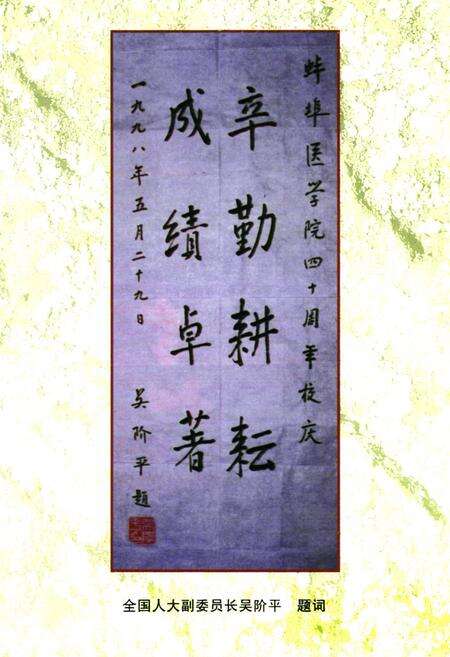 蚌埠医学院四十周年校庆
辛勤耕耘
成绩卓著
一九九八年五月二十九日
吴阶平题
全国人大副委员长吴阶平 题词